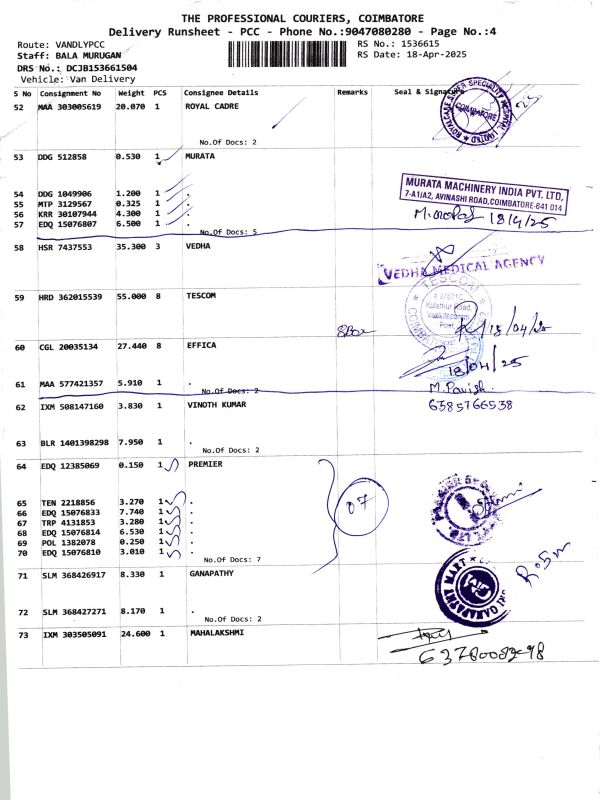 THE PROFESSIONAL COURIERS, COIMBATORE
Delivery Runsheet - PCC - Phone No.:9047080280 - Page No.:4
Route: VANDLYPCC RS No.: 1536615
Staff: BALA MURUGAN RS Date: 18-Apr-2025
DRS No.: DCJB153661504
Vehicle: Van Delivery
S No Consignment No Weight PCS Consignee Details Remarks Seal & Signature
52 MAA 303005619 20.070 1 ROYAL CADRE
COIMBATORE
No.Of Docs: 2
53 DDG 512858 0.530 1 MURATA
MURATA MACHINERY INDIA PVT. LTD,
7-A1/A2, AVINASHI ROAD, COIMBATORE-641 014
54 DDG 1049906 1.200 1 .
55 MTP 3129567 0.325 1 .
56 KRR 30107944 4.300 1 .
18/4/25
57 EDQ 15076807 6.500 1 .
No.Of Docs: 5
58 HSR 7437553 35.300 3 VEDHA
VEDHA MEDICAL AGENCY
59 HRD 362015539 55.000 8 TESCOM
TESCOM
8Box
18/04/25
60 CGL 20035134 27.440 8 EFFICA
18/04/25
61 MAA 577421357 5.910 1 .
No.Of Docs: 2
M.Pavish.
6385766538
62 IXM 508147160 3.830 1 VINOTH KUMAR
63 BLR 1401398298 7.950 1 .
No.Of Docs: 2
64 EDQ 12385069 0.150 1 PREMIER
65 TEN 2218856 3.270 1 .
66 EDQ 15076833 7.740 1 .
67 TRP 4131853 3.280 1 .
68 EDQ 15076814 6.530 1 .
69 POL 1382078 0.250 1 .
70 EDQ 15076810 3.010 1 .
07
No.Of Docs: 7
71 SLM 368426917 8.330 1 GANAPATHY
72 SLM 368427271 8.170 1 .
No.Of Docs: 2
73 IXM 303505091 24.600 1 MAHALAKSHMI